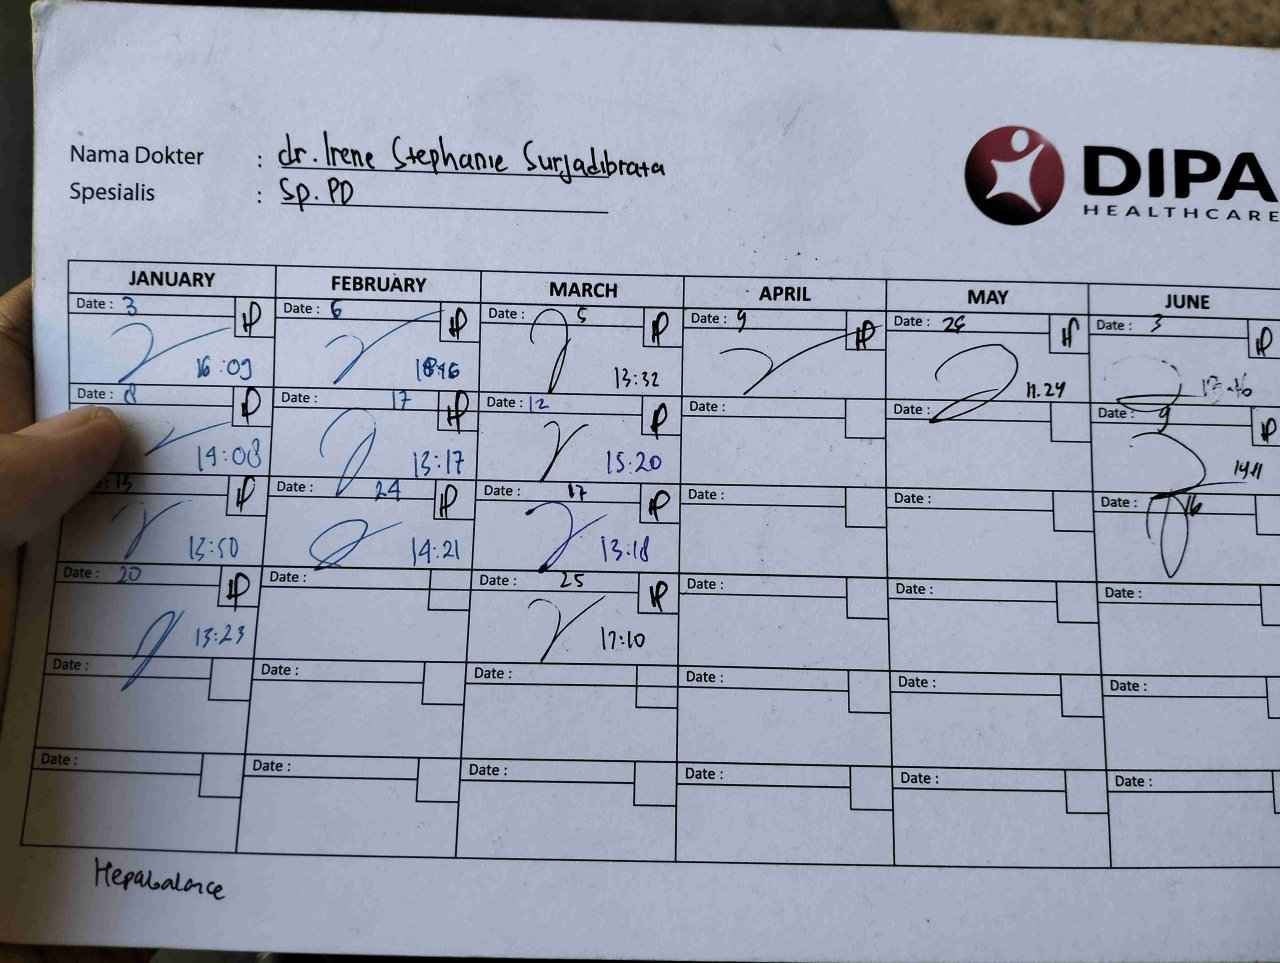 Nama Dokter : dr. Irene Stephanie Surjadibrata
Spesialis : Sp. PD
DIPA
HEALTHCARE
JANUARY FEBRUARY MARCH APRIL MAY JUNE
Date : 3 Date : 6 Date : 5 Date : 9 Date : Date : 3
16:09 13:32 11.24 13.46
Date : 8 Date : 17 Date : 12 Date : Date : 9
14:08 13:17 15:20 Date : 1411
13 Date : 24 Date : 17 Date : Date : Date : 16
13:50 14:21 13:18
Date : 20 Date : Date : 25 Date : Date : Date :
13:23 17:10
Date : Date : Date : Date : Date : Date :
Date : Date : Date : Date : Date : Date :
Hepabalance